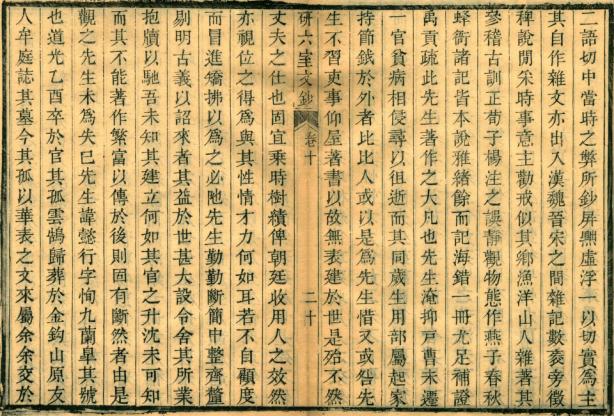 二語切中當時之弊所鈔屏黜虛浮一以切實為主
其自作雜文亦出入漢魏晉宋之間雜記數袠旁徵
稗說閒采時事意主勸戒似其鄉漁洋山人雜著其
參稽古訓正荀子楊注之誤靜觀物態作燕子春秋
蜂衙諸記皆本說雅緒餘而記海錯一冊尤足補證
禹貢疏此先生著作之大凡也先生淹抑戶曹未遷
一官貧病相侵尋以徂逝而其同歲生用部屬起家
持節鉞於外者比比人或以是為先生惜又或咎先
生不習吏事仰屋著書以故無表建於世是殆不然
研六室文鈔 卷十 二十
丈夫之仕也固宜乘時樹績俾朝廷收用人之效然
亦視位之得為與其性情才力何如耳若不自顧度
而冒進矯拂以為之必阤先生勤勤斷簡中整齊釐
剔明古義以詔來者其益於世甚大設令舍其所業
抱牘以馳吾未知其建立何如其官之升沈未可知
而其不能著作繁富以傳於後則固有斷然者由是
觀之先生未為失巳先生諱懿行字恂九蘭皋其號
也道光乙酉卒於官其孤雲鵠歸葬於金鉤山原友
人牟庭誌其墓今其孤以華表之文來屬余余交於